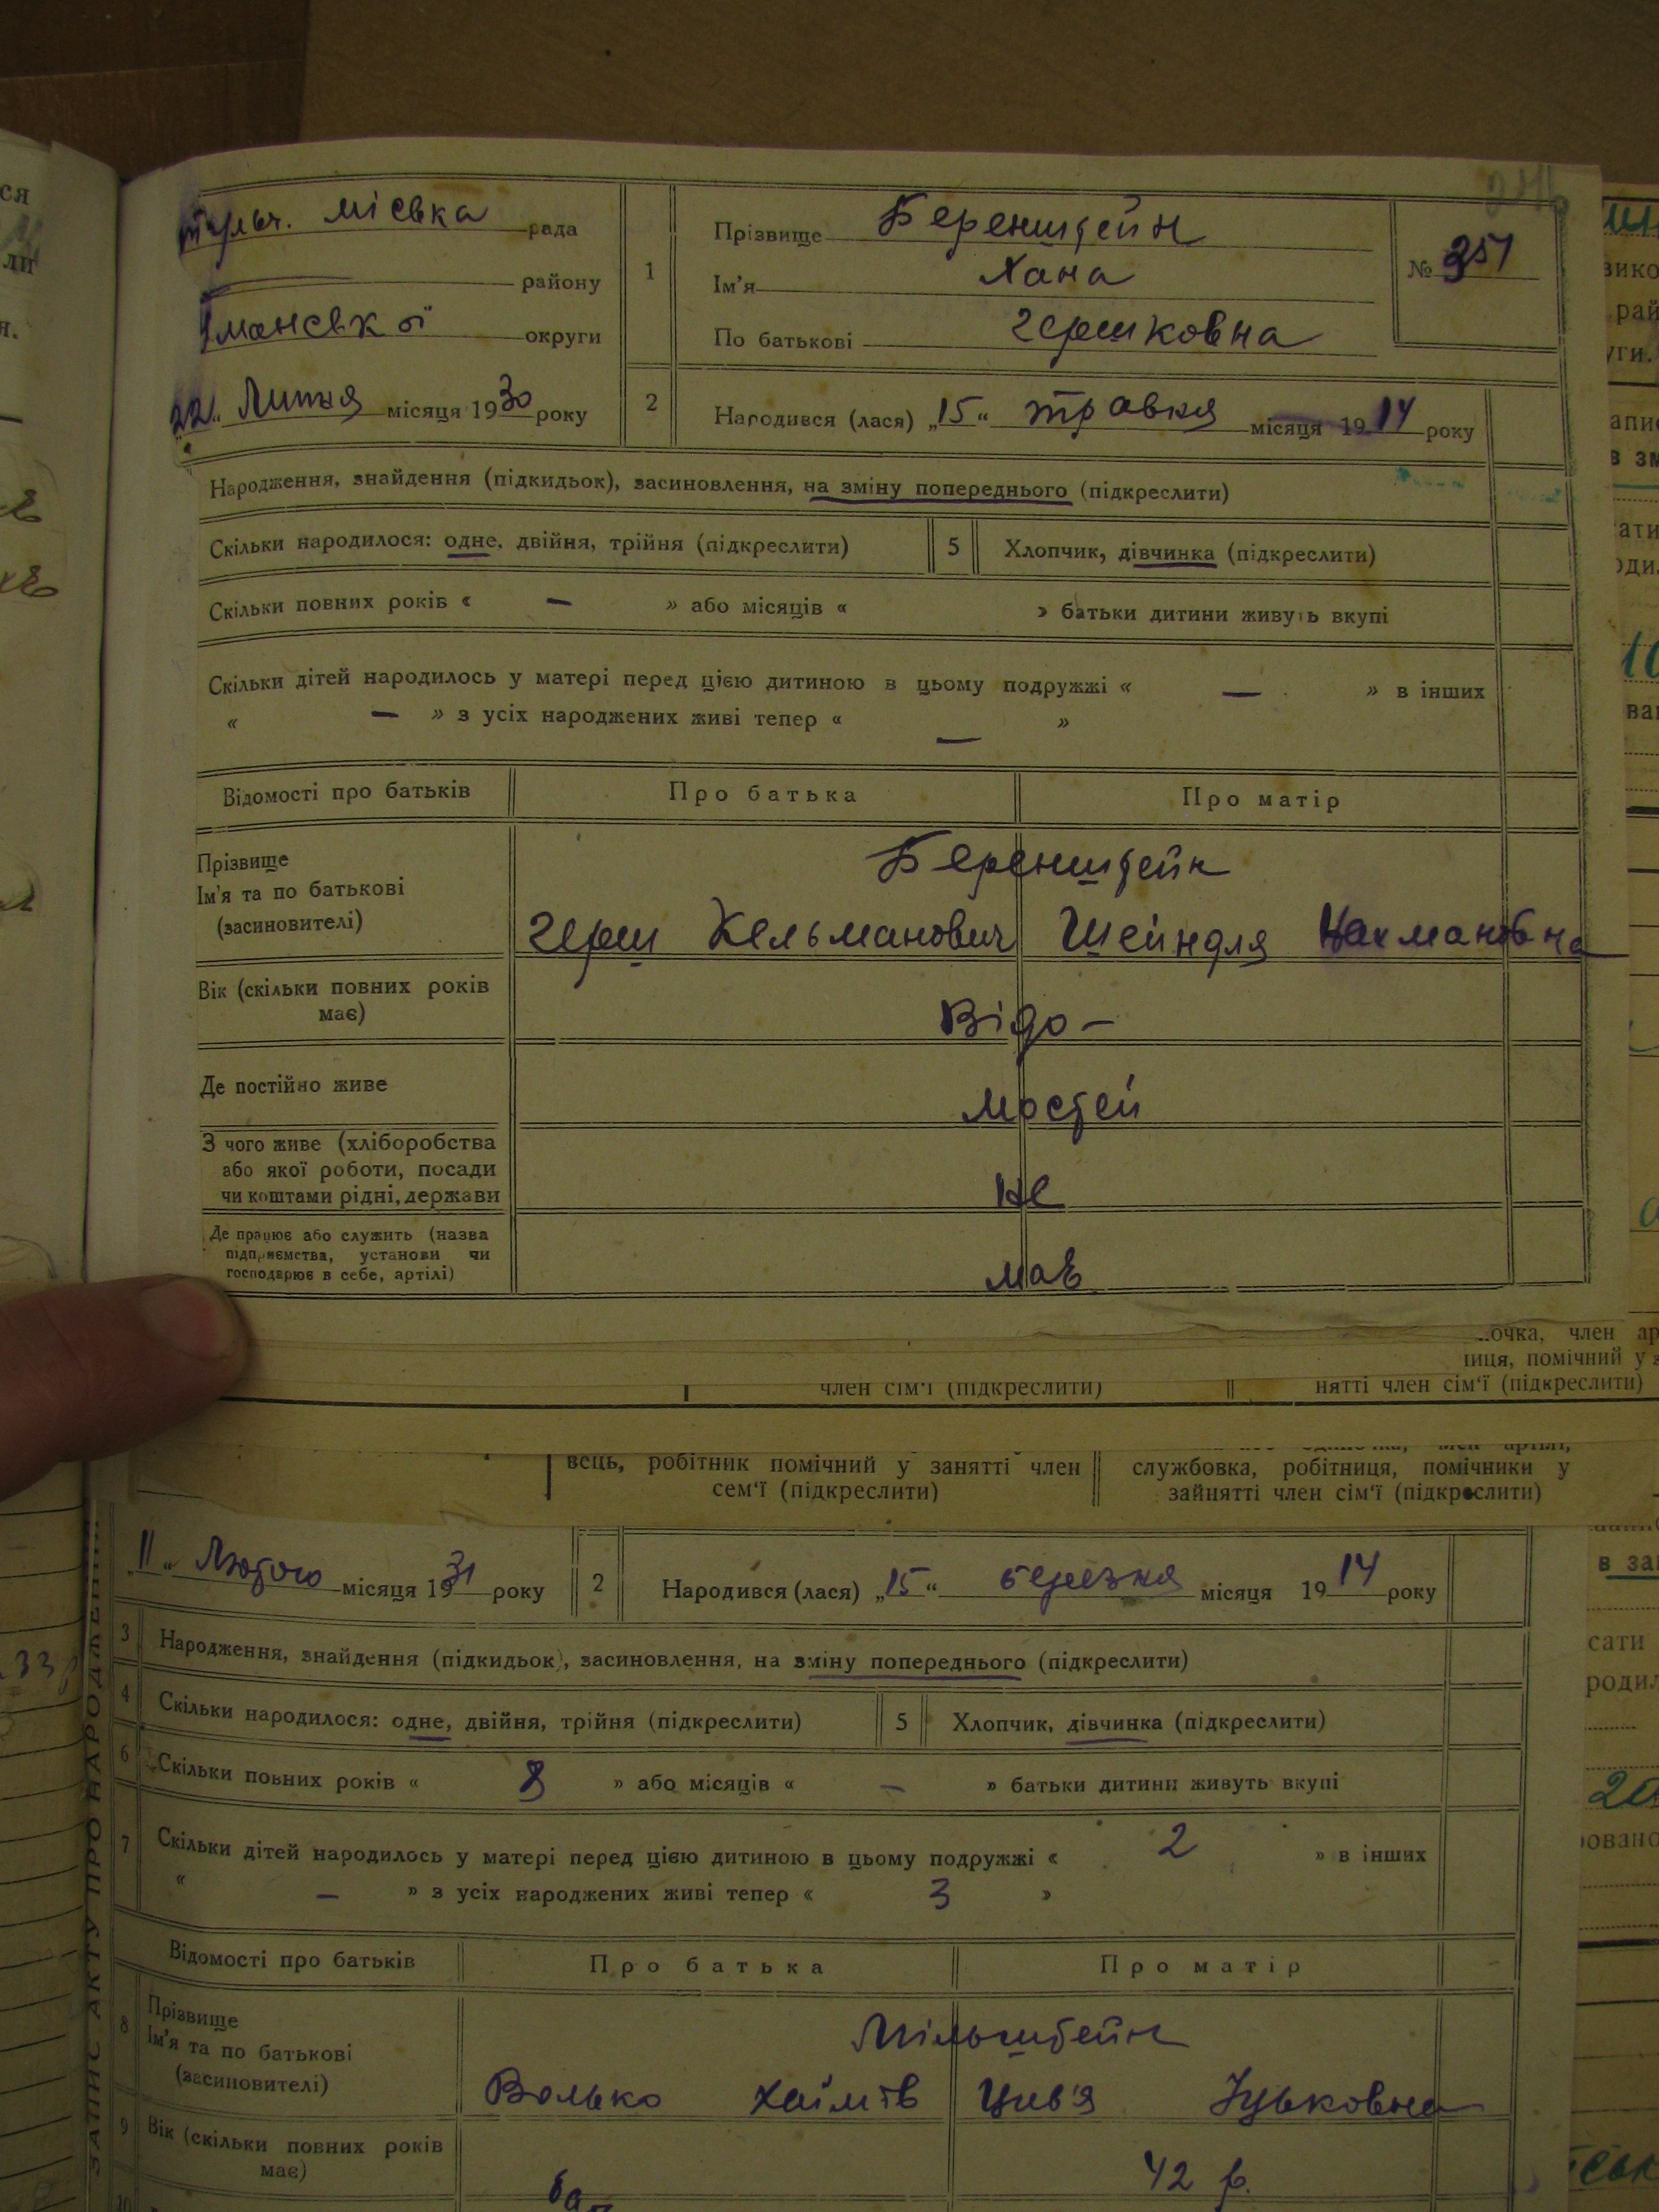 міська рада
району
Уманської округи
22 Липня місяця 1930 року
1
Прізвище Беренштейн
Ім'я Хана
По батькові Гершковна
№ 351
2
Народився (лася) „15“ травня місяця 1914 року
Народження, знайдення (підкидьок), засиновлення, на зміну попереднього (підкреслити)
Скільки народилося: одне, двійня, трійня (підкреслити)
5 Хлопчик, дівчинка (підкреслити)
Скільки повних років « — » або місяців « » батьки дитини живуть вкупі
Скільки дітей народилось у матері перед цією дитиною в цьому подружжі « — » в інших
« — » з усіх народжених живі тепер « — »
Відомості про батьків Про батька Про матір
Прізвище
Ім'я та по батькові
(засиновителі)
Беренштейн
Герш Кельманович Шейндля Нахмановна
Вік (скільки повних років
має)
Відо-
Де постійно живе
мостей
З чого живе (хліборобства
або якої роботи, посади
чи коштами рідні, держави
не
Де працює або служить (назва
підприємства, установи чи
господарює в себе, артілі)
має
член сім'ї (підкреслити)
очка, член ар
ниця, помічний у з
нятті член сім'ї (підкреслити)
вець, робітник помічний у занятті член
сем'ї (підкреслити)
службовка, робітниця, помічники у
зайнятті член сім'ї (підкреслити)
„11“ Лютого місяця 1931 року
2 Народився (лася) „15“ березня місяця 1914 року
3 Народження, знайдення (підкидьок), засиновлення, на зміну попереднього (підкреслити)
4 Скільки народилося: одне, двійня, трійня (підкреслити)
5 Хлопчик, дівчинка (підкреслити)
6 Скільки повних років « 8 » або місяців « — » батьки дитини живуть вкупі
7 Скільки дітей народилось у матері перед цією дитиною в цьому подружжі « 2 » в інших
« — » з усіх народжених живі тепер « 3 »
Відомості про батьків Про батька Про матір
8 Прізвище
Ім'я та по батькові
(засиновителі)
Мільштейн
Волько Хаїмів Цив'я Зуьковна
9 Вік (скільки повних років
має)
42 р.
10
ЗАПИС АКТУ ПРО НАРОДЖЕННЯ